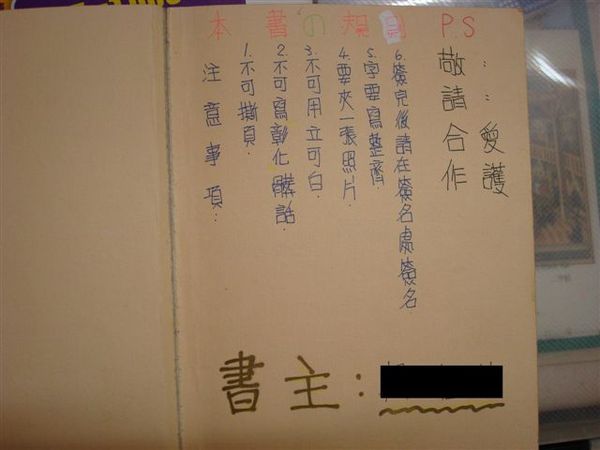 本書の規則 P.S
注意事項:
1.不可撕頁.
2.不可寫彰化話.
3.不可用立可白.
4.要夾一張照片.
5.字要寫整齊
6.簽完後請在簽名處簽名
敬請合作
::愛護
書主: